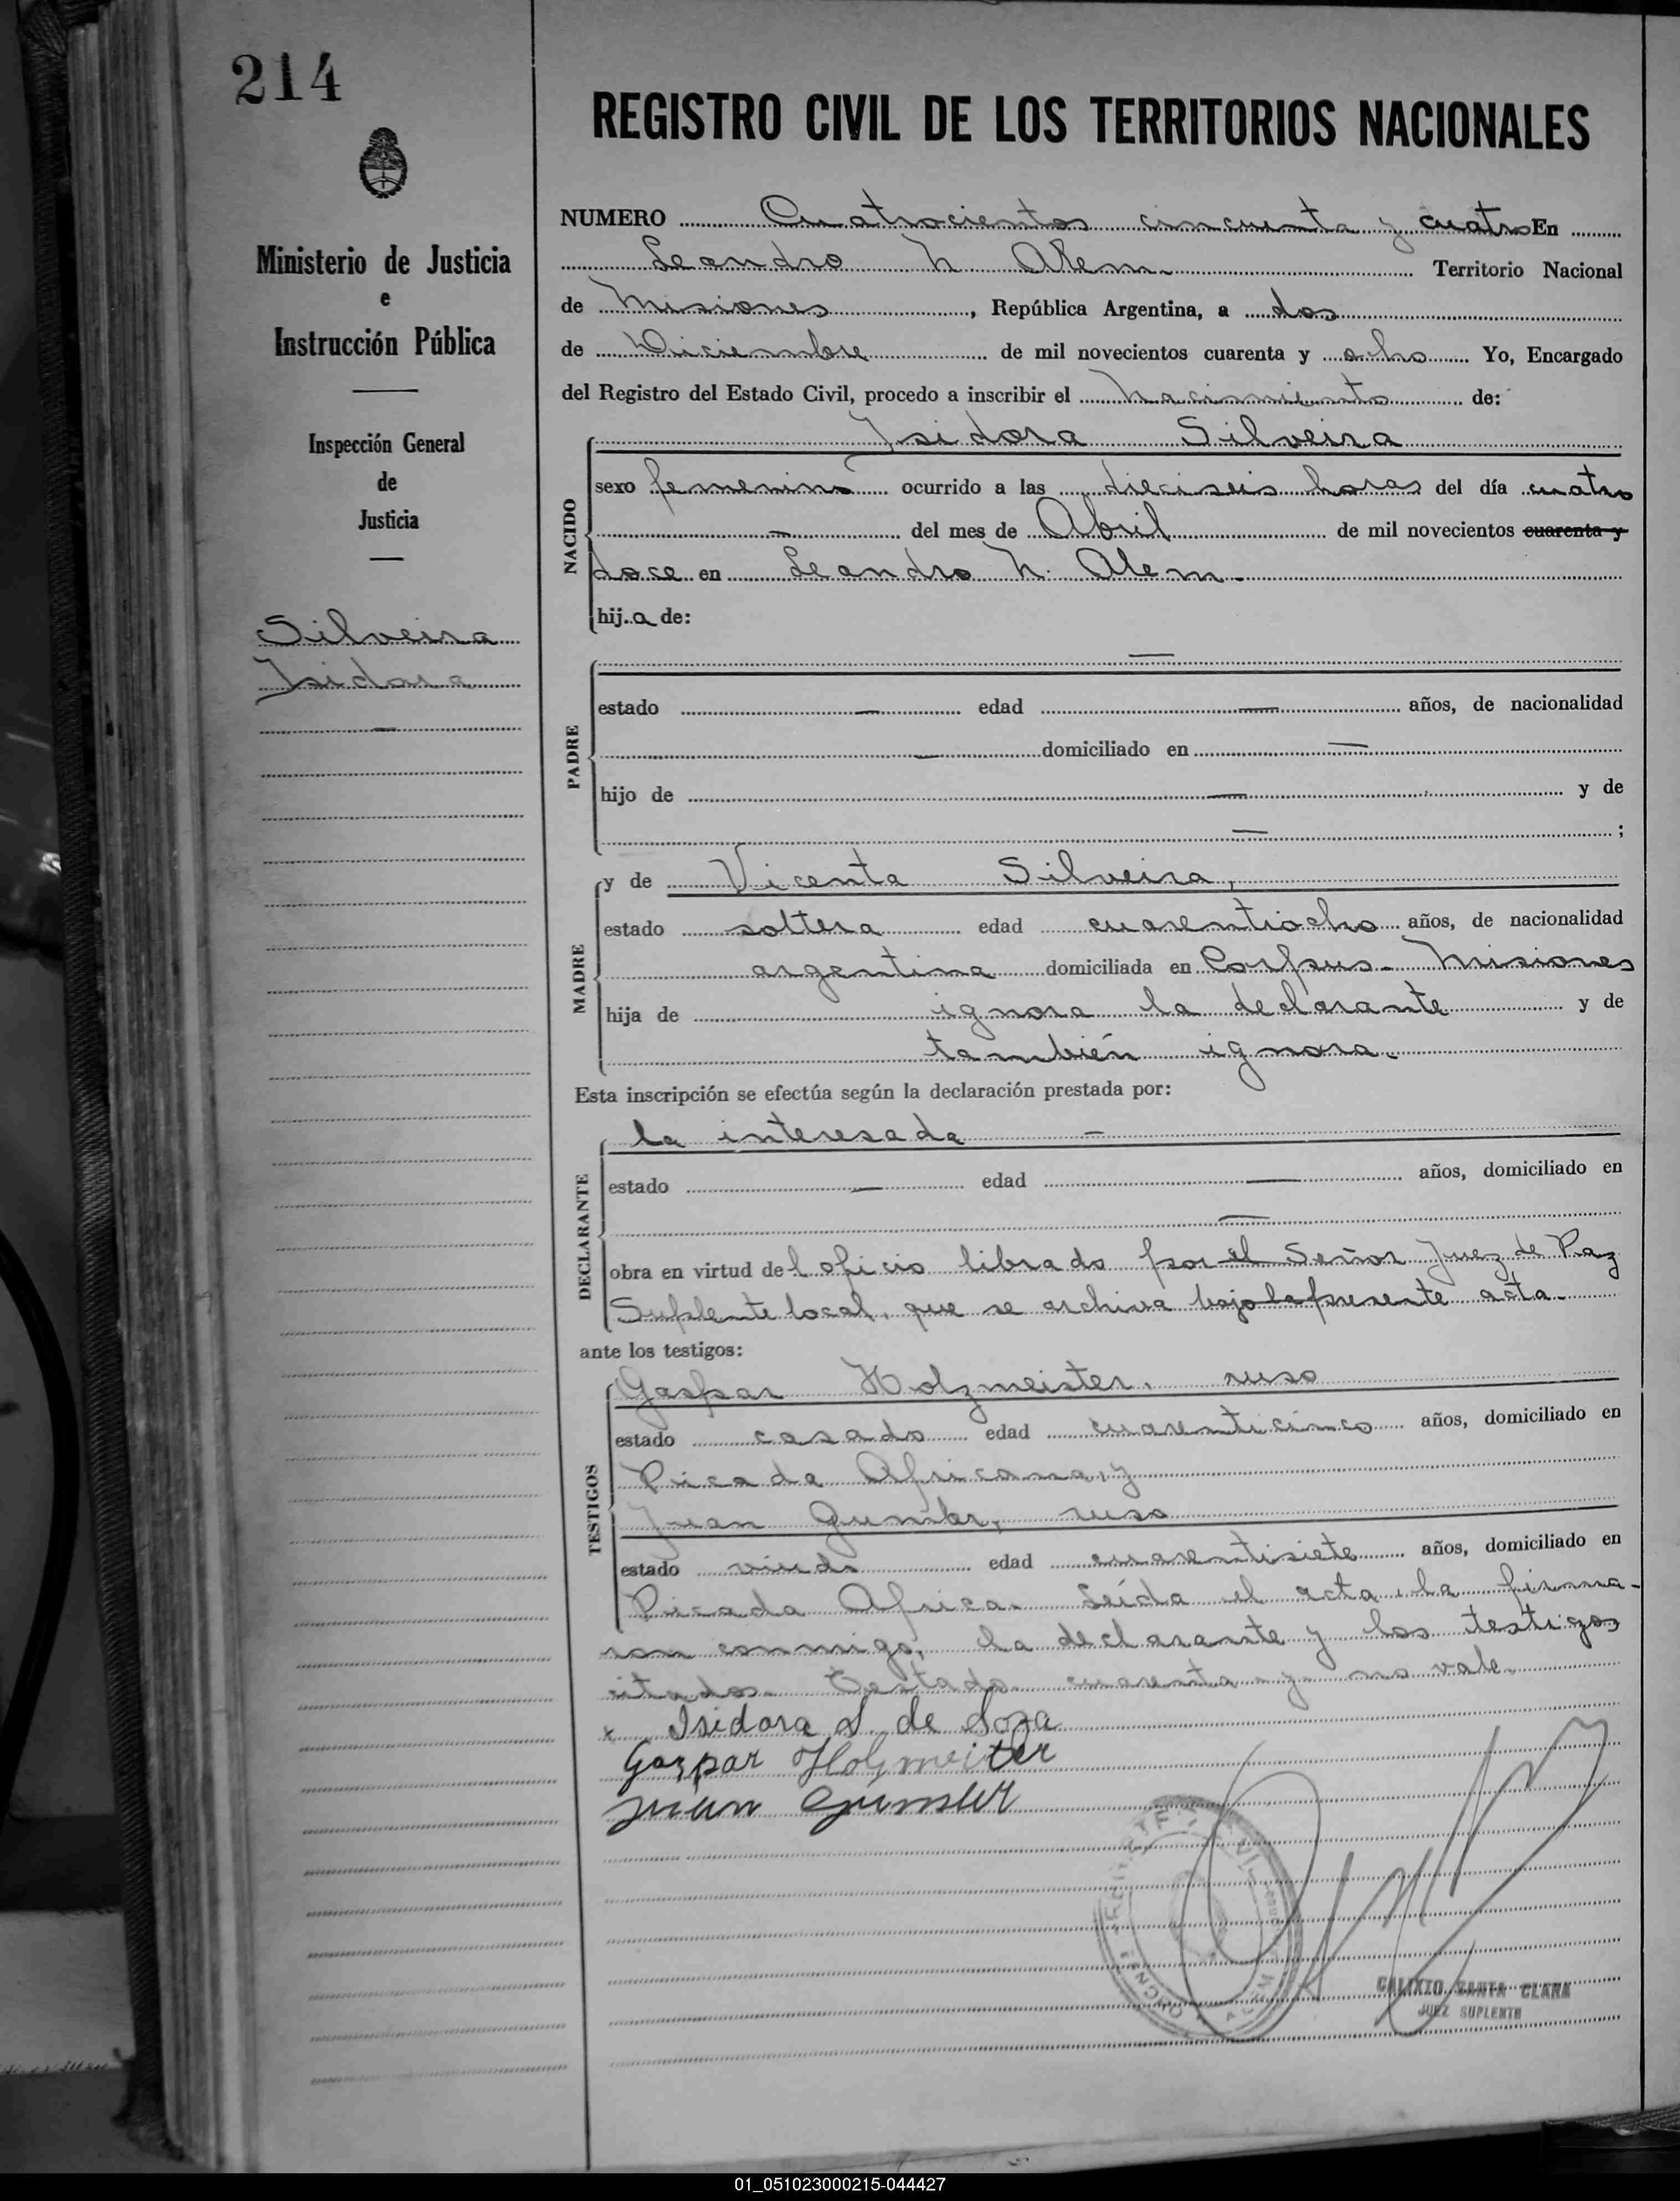 214
REGISTRO CIVIL DE LOS TERRITORIOS NACIONALES
Ministerio de Justicia
e
Instrucción Pública
Inspección General
de
Justicia
Silveira
Isidora
NUMERO Cuatrocientos cincuenta y cuatro En
Leandro N Alem. Territorio Nacional
de Misiones, República Argentina, a dos
de Diciembre de mil novecientos cuarenta y ocho Yo, Encargado
del Registro del Estado Civil, procedo a inscribir el Nacimiento de:
NACIDO
Isidora Silveira
sexo femenino ocurrido a las dieciseis horas del día cuatro
— del mes de Abril de mil novecientos cuarenta y
doce en Leandro N. Alem.
hija de:
PADRE
—
estado — edad — años, de nacionalidad
— domiciliado en —
hijo de — y de
— ;
MADRE
y de Vicenta Silveira,
estado soltera edad cuarentiocho años, de nacionalidad
argentina domiciliada en Corpus - Misiones
hija de ignora la declarante y de
también ignora.
Esta inscripción se efectúa según la declaración prestada por:
DECLARANTE
la interesada —
estado — edad — años, domiciliado en
—
obra en virtud del oficio librado por el Señor Juez de Paz
Suplente local, que se archiva bajo la presente acta.
ante los testigos:
TESTIGOS
Gaspar Holzmeister, ruso
estado casado edad cuarenticinco años, domiciliado en
Picada Africana, y
Juan Gumler, ruso
estado viudo edad cuarentisiete años, domiciliado en
Picada Africa. Leída el acta, la firma-
ron conmigo, la declarante y los testigos
citados. Testado cuarenta y no vale.
x Isidora S. de Soza
Gaspar Holzmeiter
Juan Gumler
CALIXTO SANTA CLARA
JUEZ SUPLENTE
01_051023000215-044427